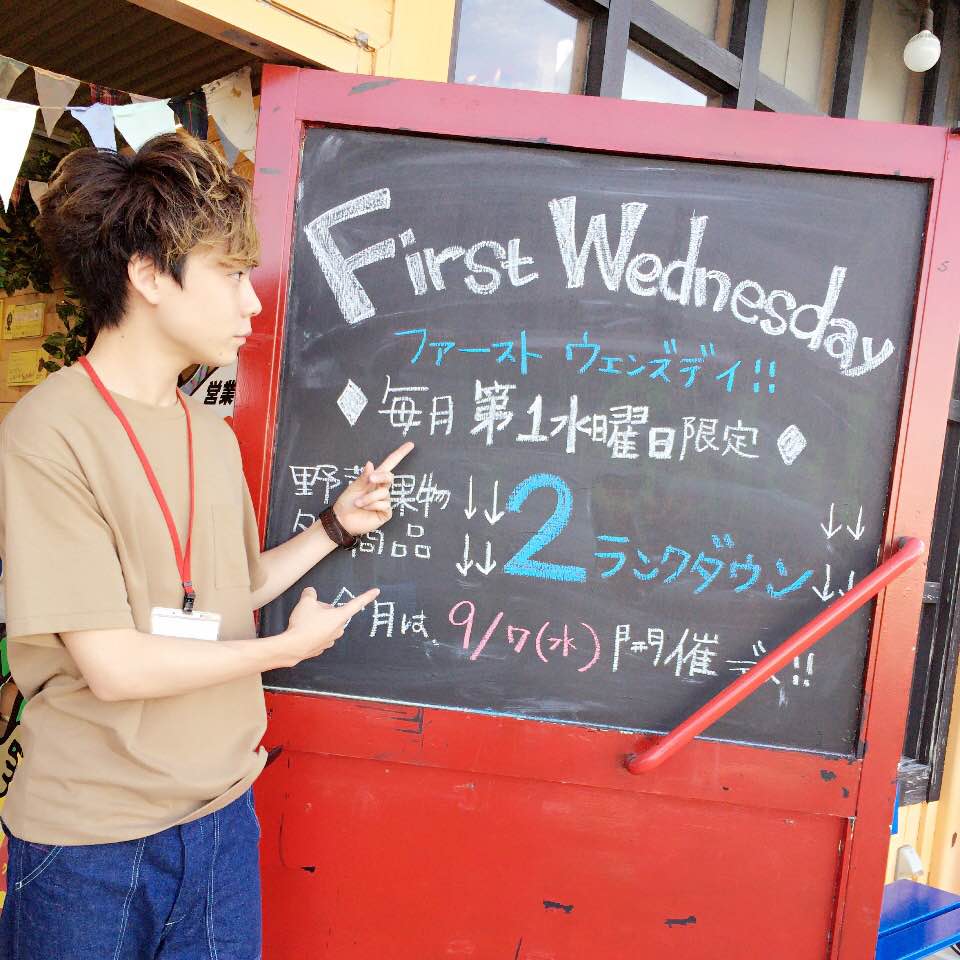 First Wednesday
ファースト ウェンズデイ!!
毎月 第1水曜日限定
野菜果物 ↓↓ ↓↓
商品 ↓↓ 2ランクダウン ↓↓
今月は 9/7(水) 開催デス!!
営業